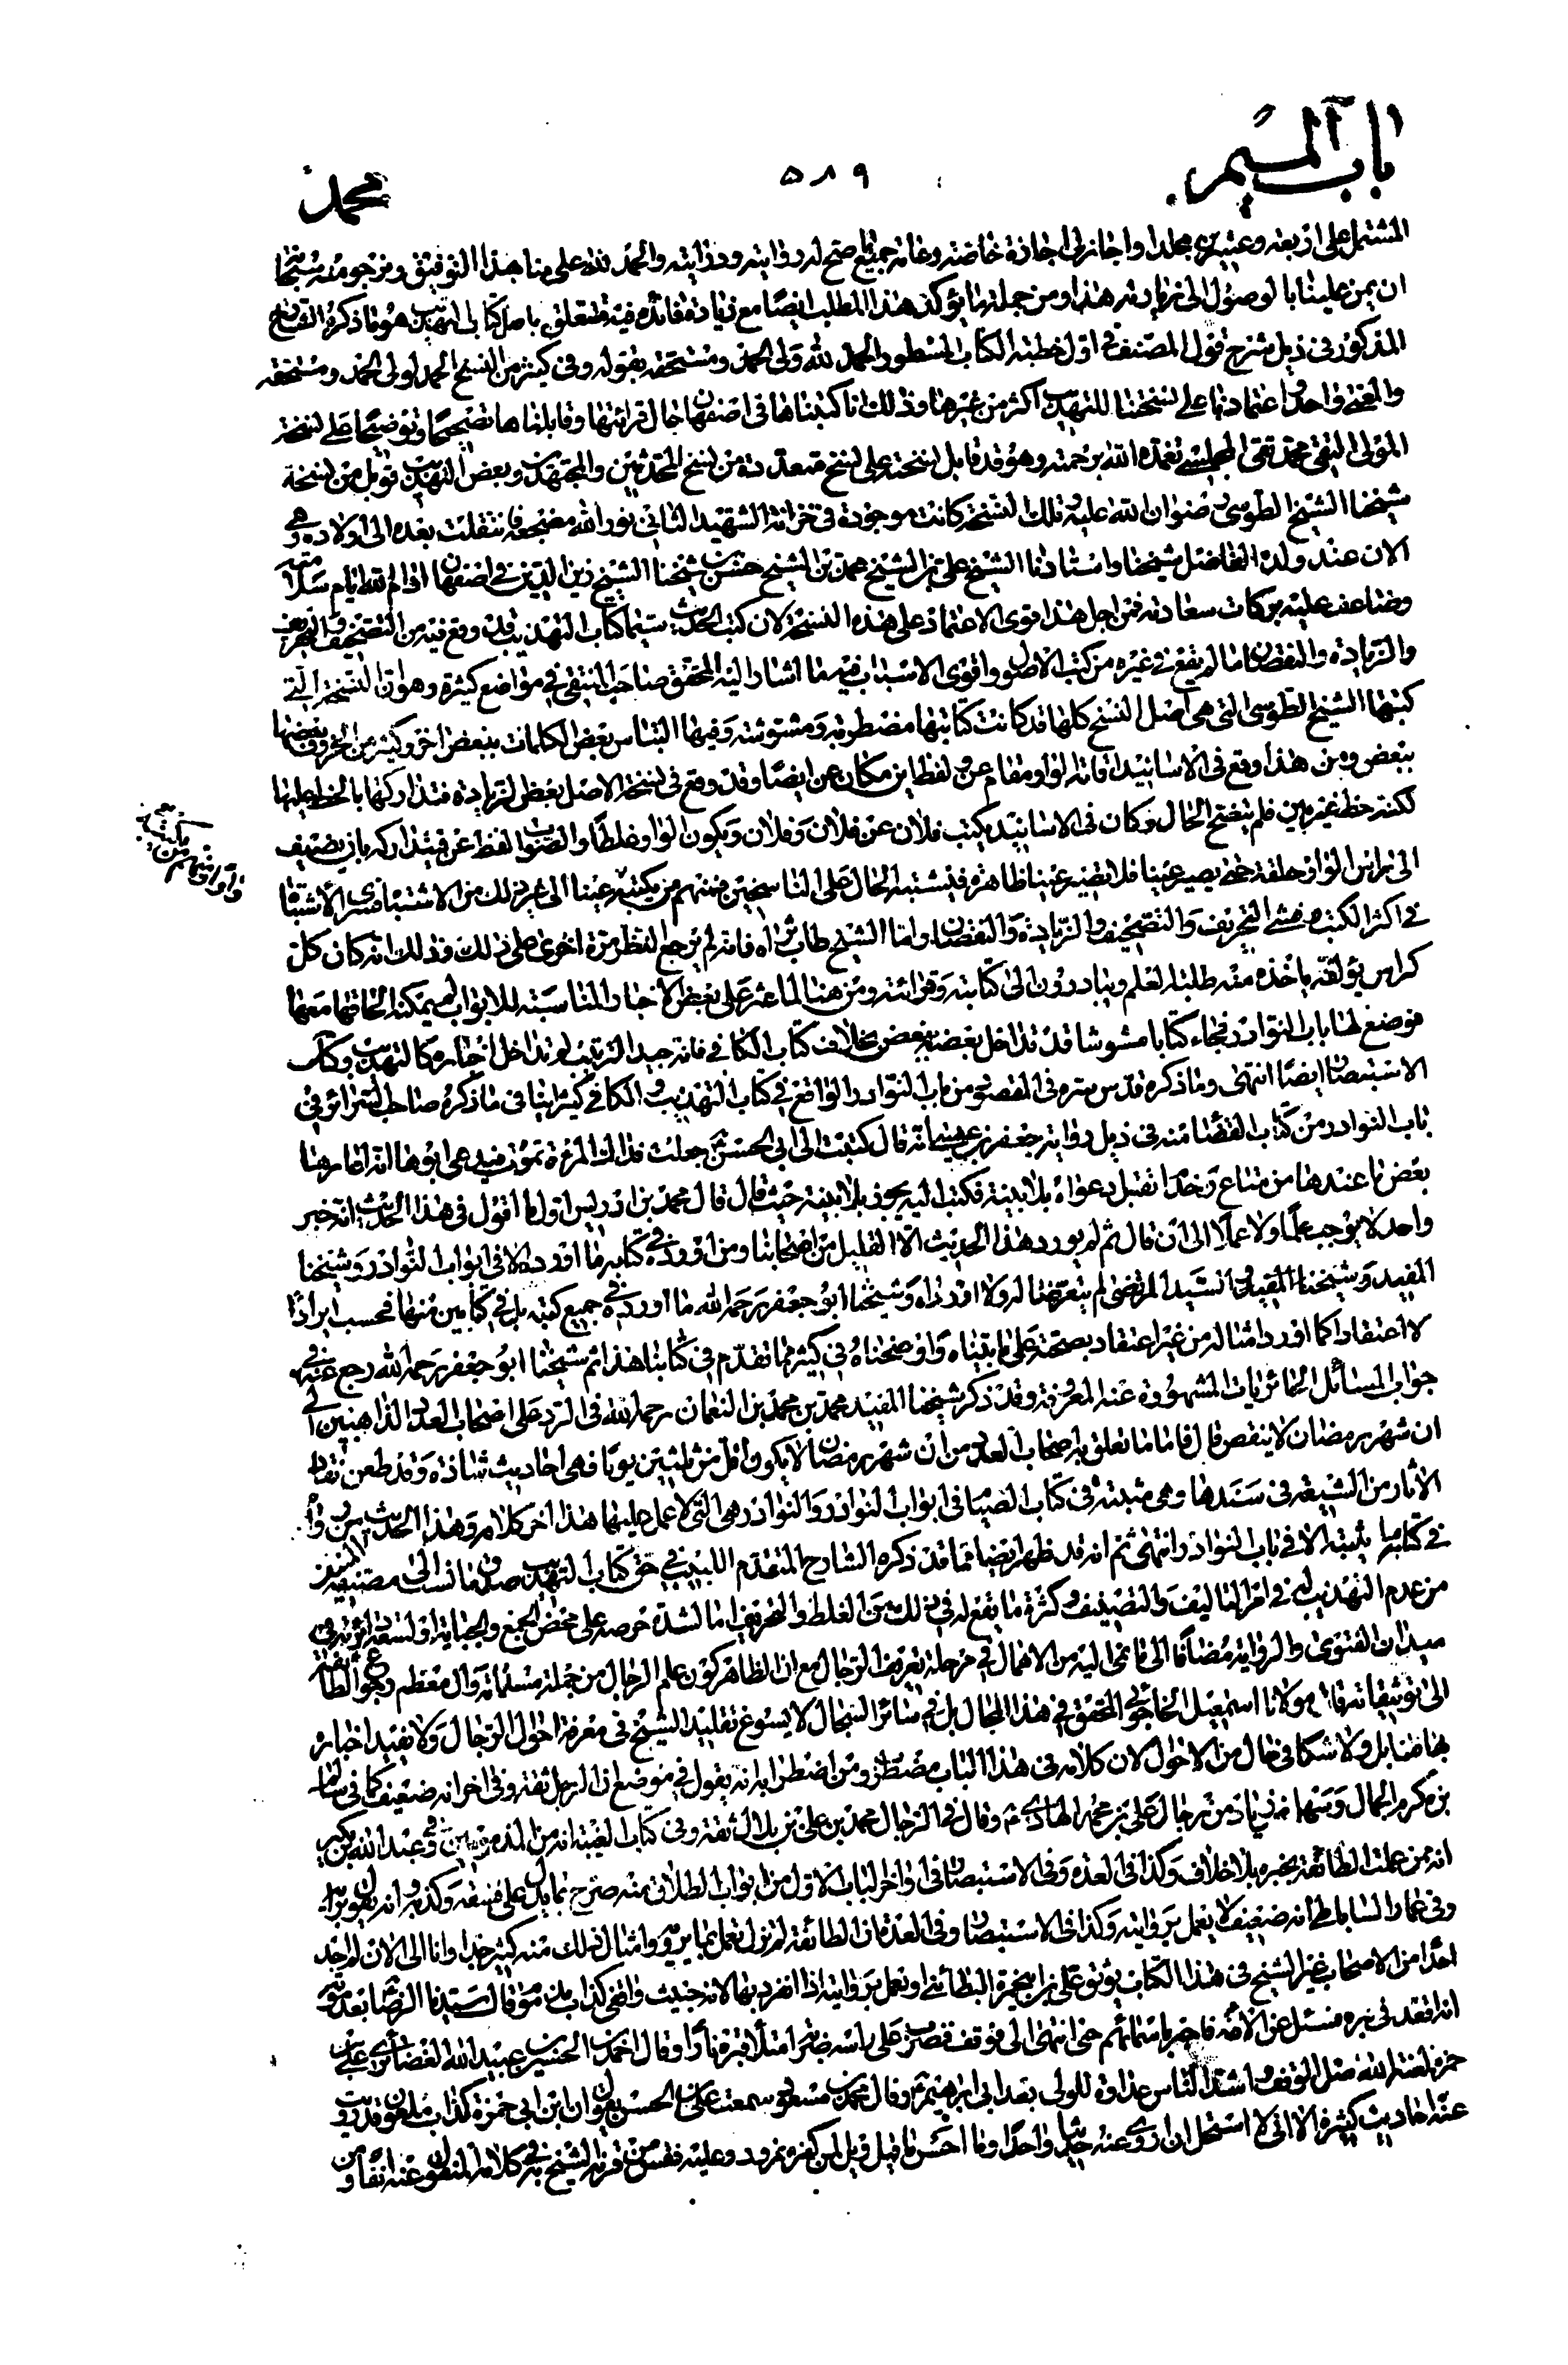 باب الميم
٥٨٩
محمد
المشتمل على اربعة وعشرين مجلدا واجازلى اجازة خاصة وعامة جميع ما صح له روايته ودرايته والحمد لله على منا هذا التوفيق ونرجو منه سبحانه
ان يمن علينا بالوصول الى زيارته هذا ومن جملة ما يؤكد هذا المطلب ايضا مع زيادة فائدة فيه متعلق باصل كتابى التهذيب هو ما ذكره الشارح
المذكور فى ذيل شرح قول المصنف فى اول خطبة الكتاب المسطور الحمد لله ولى الحمد ومستحقه بقوله وفى كثير من النسخ الحمد لولى الحمد ومستحقه
والمعنى واحد واعتمادنا على نسختنا للتهذيب اكثر من غيرها وذلك انا كتبناها فى اصفهان حال قرائتها وقابلناها تصحيحا وتوضيحا على نسخة
المولى التقى محمد تقى المجلسى تغمده الله برحمته وهو قد قابل نسخته على نسخ متعددة من نسخ المحدثين والمجتهدين وبعض التهذيب قوبل من نسخة
شيخنا الشيخ الطوسى رضوان الله عليه وتلك النسخة كانت موجودة فى خزانة الشهيد الثانى نور الله مضجعه فانتقلت بعده الى اولاده وهى
الان عند ولده الفاضل شيخنا واستادنا الشيخ على بن الشيخ محمد بن الشيخ حسن بن شيخنا الشيخ زين الدين فى اصفهان ادام الله ايام سلامته
وضاعف عليه بركات سعادته فمن اجل هذا قوى الاعتماد على هذه النسخة لان كتب الحديث سيما كتاب التهذيب قد وقع فيه من التصحيف والتحريف
والزيادة والنقصان ما لم يقع فى غيره من كتب الاصول واقوى الاسباب فيه ما اشار اليه المحقق صاحب المنتقى فى مواضع كثيرة وهو ان النسخة التى
كتبها الشيخ الطوسى التى هى اصل النسخ كلها قد كانت كتابتها مضطربة ومشوشة وفيها التباس بعض الكلمات ببعض اخر وكثير من الحروف بعضها
ببعض ومن هذا وقع فى الاسانيد اقامة الواو مقام عن ولفظ ابن مكان عن ايضا وقد وقع فى نسخة الاصل بعض الزيادة فتداركها بالخط عليها
لكنه خط غير بين فلم يتضح الحال وكان فى الاسانيد يكتب فلان عن فلان وفلان ويكون الواو غلطا والصواب لفظ عن فيتداركه بان يضيف
الى راس الواو حلقة حتى يصير عينا فلا تصير عينا ظاهرة فيشتبه الحال على الناسخين فمنهم من يكتبه عينا الى غير ذلك من الاشتباه فسرى الاشتباه
فى اكثر الكتب وفشى التحريف والتصحيف والزيادة والنقصان واما الشيخ طاب ثراه فانه لم يرجع النظر مرة اخرى على ذلك وذلك انه كان كل
كراس يؤلفه ياخذه منه طلبة العلم ويبادرون الى كتابته وقرائته ومن هنا لما عثر على بعض الاخبار المناسبة للابواب لم يمكنه الحاقها معها
فوضع لها باب النوادر فجاء كتابا مشوشا قد تداخل بعضه ببعض بخلاف كتاب الكافى فانه جيد الترتيب لم تتداخل اخباره كالتهذيب وكتاب
الاستبصار ايضا انتهى وما ذكره قدس سره فى المقصود من باب النوادر الواقع فى كتاب التهذيب والكافى كثيرا ينافى ما ذكره صاحب السرائر فى
باب النوادر من كتاب القضاء منه فى ذيل رواية جعفر بن عيسى انه قال كتبت الى ابى الحسن جعلت فداك المرءة تموت فيدعى ابوها انه اعارها
بعض ما عندها من متاع وخدم اتقبل دعواه بلا بينة فكتب اليه يجوز بلا بينة حيث قال قال محمد بن ادريس اول ما اقول فى هذا الحديث انه خبر
واحد لا يوجب علما ولا عملا الى ان قال ثم لم يورد هذا الحديث الا القليل من اصحابنا ومن اورده فى كتابه ما اورده الا فى ابواب النوادر وشيخنا
المفيد وشيخنا المفيد والسيد المرتضى لم يتعرضا له ولا اورداه وشيخنا ابو جعفر رحمه الله ما اورده فى جميع كتبه بل فى كتابين منها فحسب ايرادا
لا اعتقادا كما اورد امثاله من غير اعتقاد بصحته على ما بيناه واوضحناه فى كثير مما تقدم فى كتابنا هذا ثم شيخنا ابو جعفر رحمه الله رجع عنه فى
جواب المسائل الحائريات المشهورة عنه المعروفة وقد ذكر شيخنا المفيد محمد بن محمد بن النعمان رحمه الله فى الرد على اصحاب العدد الذاهبين الى
ان شهر رمضان لا ينقص قال فاما ما تعلق به اصحاب العدد من ان شهر رمضان لا يكون اقل من ثلثين يوما فهى احاديث شاذة وقد طعن نقاد
الاثار من الشيعة فى سندها وهى مثبتة فى كتاب الصيام فى ابواب النوادر والنوادر هى التى لا عمل عليها هذا اخر كلامه وهذا الحديث من
فى كتابيهما يثبته الا فى باب النوادر انتهى ثم انه قد ظهر ايضا مما قد ذكره الشارح المتقدم اللبيب فى حق كتاب التهذيب صدق ما نسب الى مصنفه المنيف
من عدم التهذيب له فى امر التاليف والتصنيف وكثرة ما يقع له فى ذلك من الغلط والتحريف اما لشدة حرصه على محض الجمع والجباية او لسعة دائرته فى
ميدان الفتوى والرواية مضافا الى ما نحى اليه من الاهمال فى مرحلة تعريف الرجال مع ان الظاهر كون علم الرجال من جملة مسلماته وال معظم رجوع الطائفة
الى توثيقاته قال مولانا اسمعيل الخاجوئى المحقق فى هذا المجال بل فى سائر السجال لا يسوغ تقليد الشيخ فى معرفة احوال الرجال ولا يفيد اخباره
بها ظنا بل ولا شكا فى حال من الاحوال لان كلامه فى هذا الباب مضطرب ومن اضطرابه انه يقول فى موضع ان الرجل ثقة وفى اخر انه ضعيف كما فى سالم
بن مكرم الجمال وسهل بن زياد من رجال على بن محمد الهادى ع وقال فى الرجال محمد بن على بن بلال ثقة وفى كتاب الغيبة انه من المذمومين وفى عبد الله بن بكير
انه ممن عملت الطائفة بخبره بلا خلاف وكذا فى العدة وفى الاستبصار فى اواخر الباب الاول من ابواب الطلاق منه صرح بما يدل على فسقه وكذبه وانه يقول برايه
وفى عمار الساباطى انه ضعيف لا يعمل بروايته وكذا فى الاستبصار وفى العدة ان الطائفة لم تزل تعمل بما يرويه وامثال ذلك منه كثير جدا وانا الى الان لم اجد
احدا من الاصحاب غير الشيخ فى هذا الكتاب يوثق على بن ابى حمزة البطائنى او يعمل بروايته اذا انفرد بها لانه خبيث واقفى كذاب مذموم وقال سيدنا الرضا بعد موته
انه اقعد فى قبره فسئل عن الائمة فاخبر باسمائهم حتى انتهى الى فوقف فضرب على راسه ضربة امتلأ قبره نارا وقال احمد بن الحسين بن عبيد الله الغضائرى على بن
حمزة لعنه الله اصل الوقف واشد الناس عداوة للولى بعد ابى ابراهيم ع وقال محمد بن مسعود سمعت على بن الحسن يقول ان ابن ابى حمزة كذاب ملعون قد رويت
عنه احاديث كثيرة الا انى لا استحل ان اروى عنه حديثا واحدا وما احسن ما قيل قيل لمن كفره نمرود وعليه فقس من قرنه الشيخ به فى كلامه المنقول عنه انفا ومن